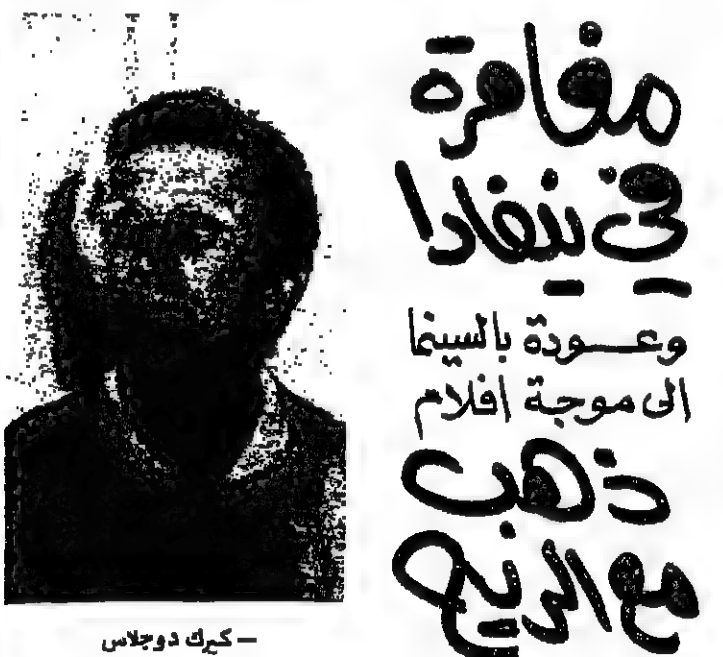 مغامرة
في نيفادا
وعودة بالسينما
الى موجة افلام
ذهب
مع الريح
– كيرك دوجلاس